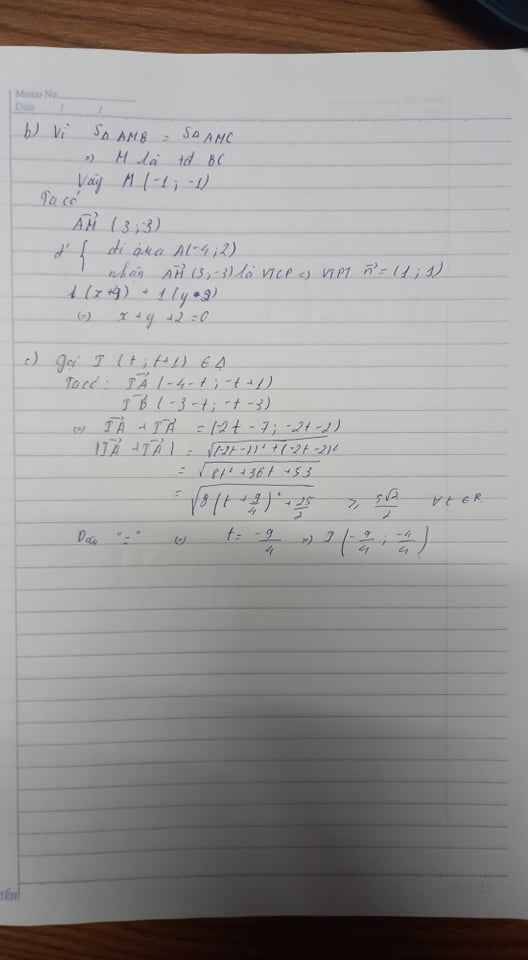 Memo No.
Date / /
b) Vì S△AMB = S△AMC
=> M là tđ BC
Vậy M (-1; -1)
Ta có
AM→ (3; -3)
d' { đi qua A(-4; 2)
nhận AM→ (3; -3) là VTCP => VTPT n→ = (1; 1)
1(x+4) + 1(y-2)
<=> x + y + 2 = 0
c) Gọi I (t; t+1) ∈ Δ
Ta có: IA→ (-4-t; -t+1)
IB→ (-3-t; -t-3)
<=> IA→ + IA→ = (-2t-7; -2t-2)
|IA→ + IA→| = √((-2t-7)² + (-2t-2)²)
= √(8t² + 36t + 53)
= √(8(t + 9/4)² + 25/2) ≥ 5√2/2 ∀t ∈ R
Dấu "=" <=> t = -9/4 => I (-9/4; -4/4)